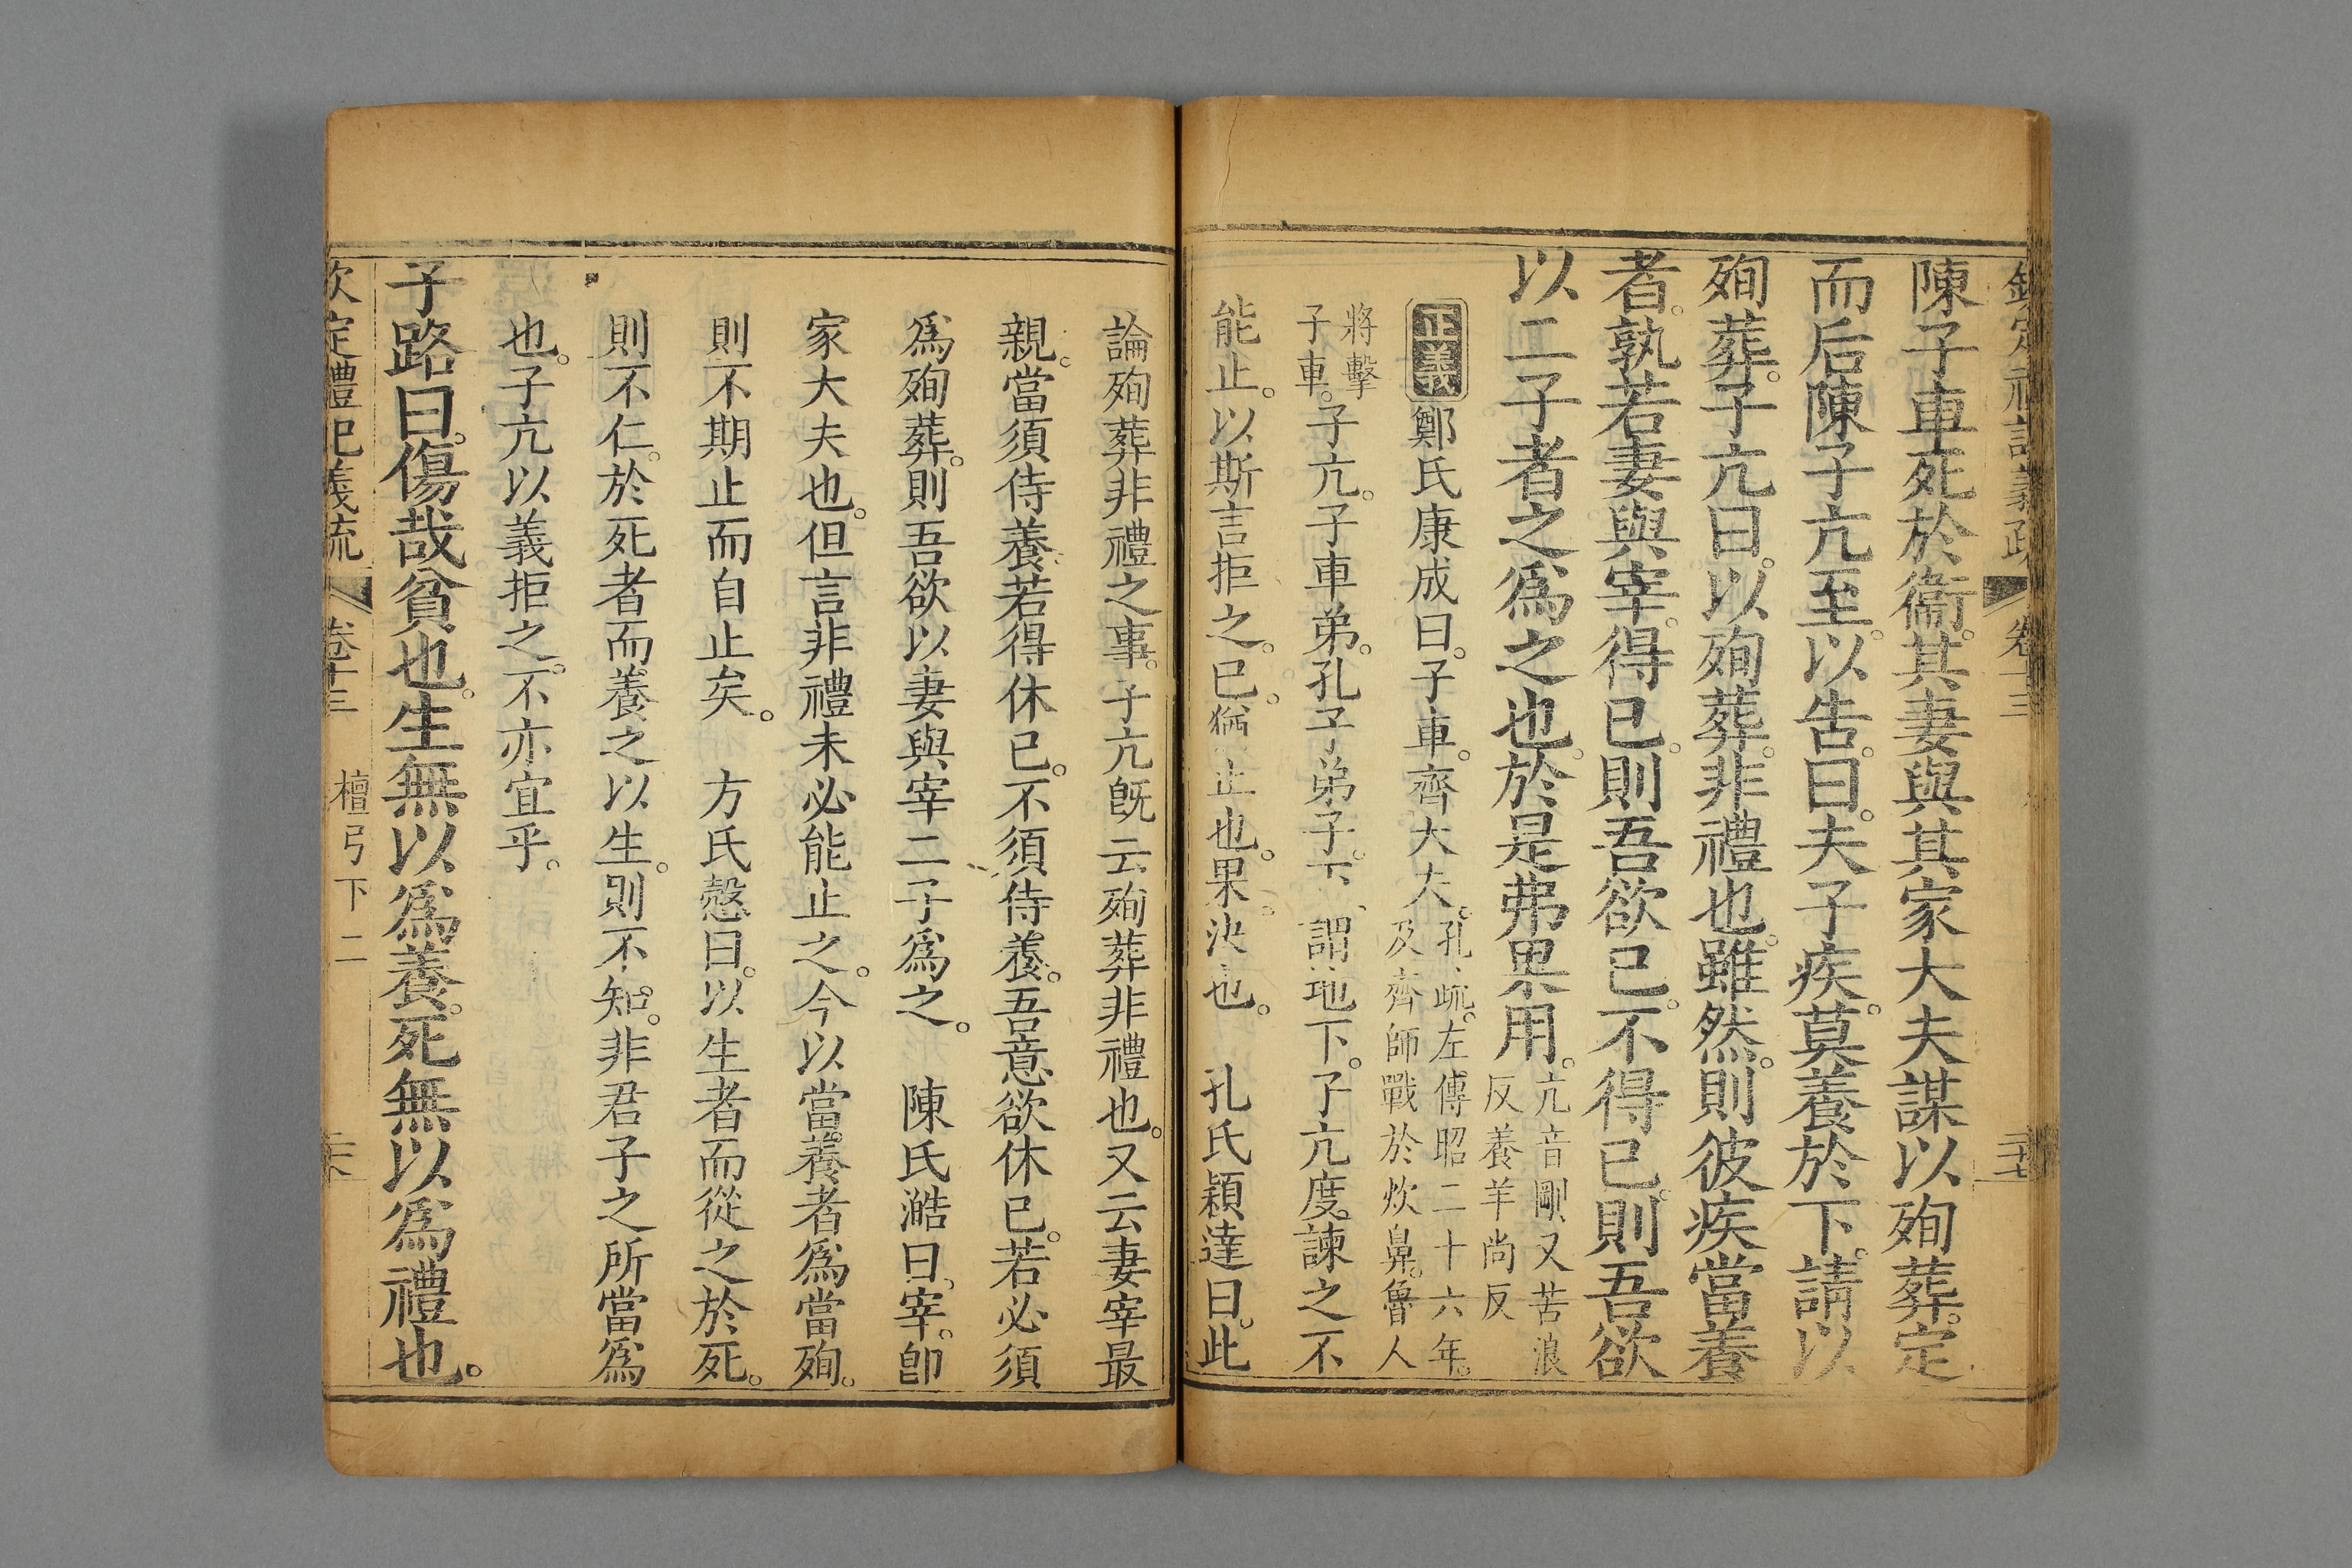 欽定禮記義疏 卷十三 二十七
陳子車死於衞。其妻與其家大夫謀以殉葬。定
而后陳子亢至。以告。曰。夫子疾。莫養於下。請以
殉葬。子亢曰。以殉葬。非禮也。雖然。則彼疾當養
者。孰若妻與宰。得已。則吾欲已。不得已。則吾欲
以二子者之爲之也。於是弗果用。亢音剛又苦浪
反養羊尚反
正義 鄭氏康成曰。子車。齊大夫。孔疏。左傳昭二十六年。
及齊師戰於炊鼻。魯人
將擊
子車。子亢。子車弟。孔子弟子。下、謂地下。子亢度。諫之不
能止。以斯言拒之。已。猶止也。果。決也。 孔氏穎達曰。此
論殉葬非禮之事。子亢旣云殉葬非禮也。又云妻宰最
親。當須侍養。若得休已。不須侍養。吾意欲休已。若必須
爲殉葬。則吾欲以妻與宰二子爲之。 陳氏澔曰。宰。卽
家大夫也。但言非禮未必能止之。今以當養者爲當殉。
則不期止而自止矣。 方氏慤曰。以生者而從之於死。
則不仁。於死者而養之以生。則不知。非君子之所當爲
也。子亢以義拒之。不亦宜乎。
子路曰。傷哉貧也。生無以爲養。死無以爲禮也。
欽定禮記義疏 卷十三 檀弓下二 二十八